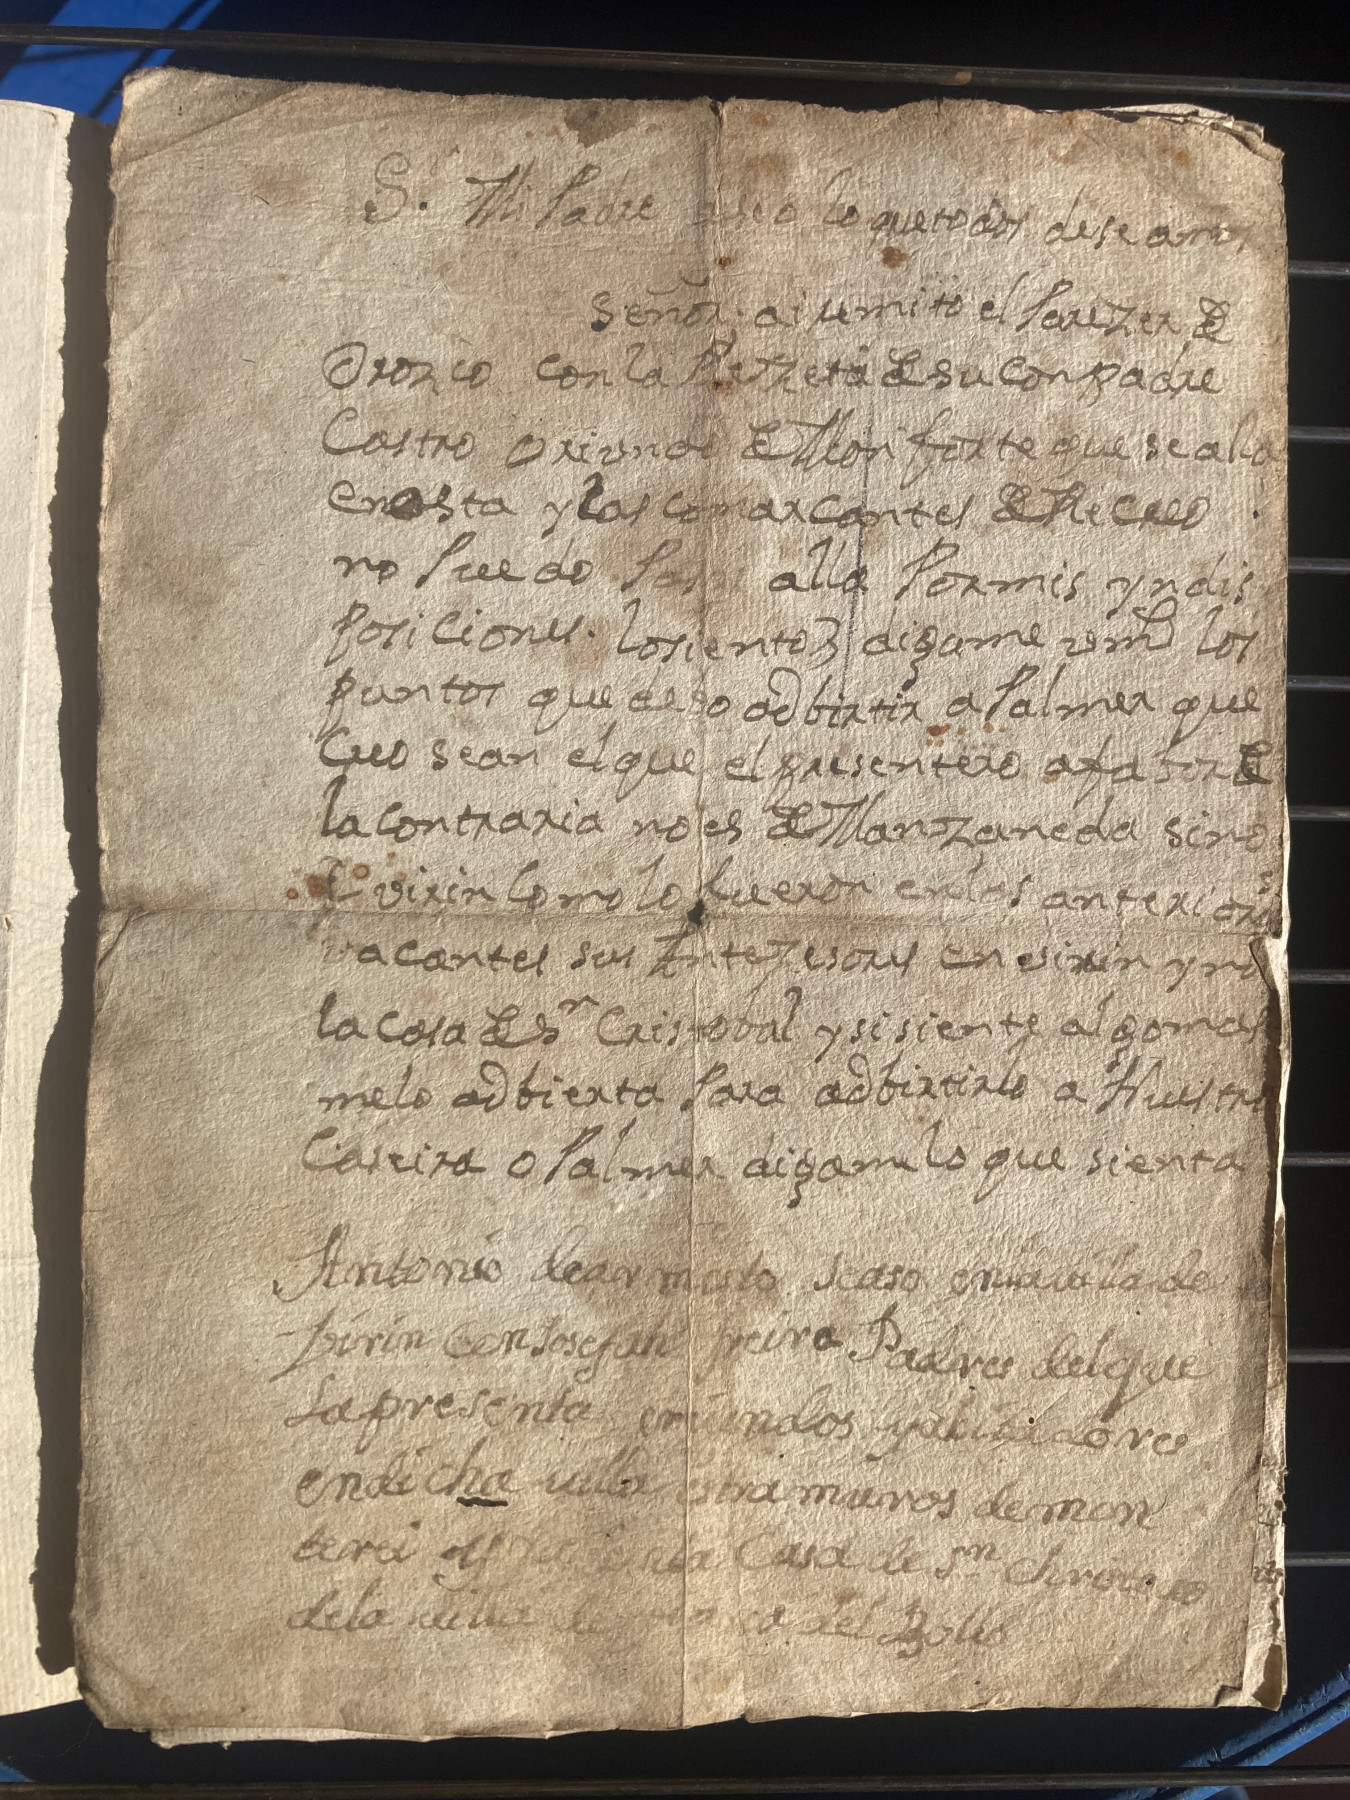 Sr. Mi Padre aseo lo que todos deseamos
Señor. ai remito el Parezer de
Orozco con la Rezeta de su conpadre
Castro oriundo de Monforte que se alla
en esta y las comarcantes de Recreo
no Puedo Pasar alla Por mis yndis
posiciones. lo siento digame vmd los
puntos que debo adbirtir a Palmer que
creo sean el que el presentero a fabor de
la contraria no es de Manzaneda sino
de virin como lo fueron en las anteriores
vacantes sus Antezesores en esirin y no
la casa de Sn Cristobal y si siente algo mas
melo adbierta Para adbirtirlo a Nuestro
Caseira o Palmer digame lo que sienta
Antonio de armesto se caso en la villa de
birin con Josepha freira Padres del que
la presenta oriundos y abitadores
en dicha villa extramuros de mon
terei casa de Sn
de la villa de del Bollo